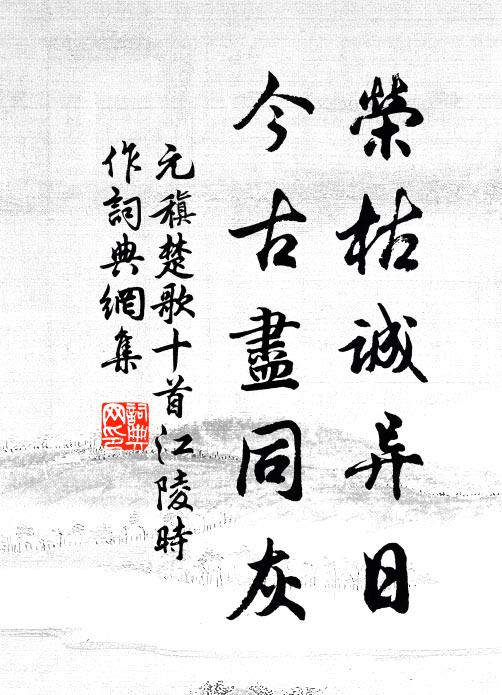 榮枯誠异日
今古盡同灰
元稹楚歌十首江陵時
作詞典網集
詞典网印